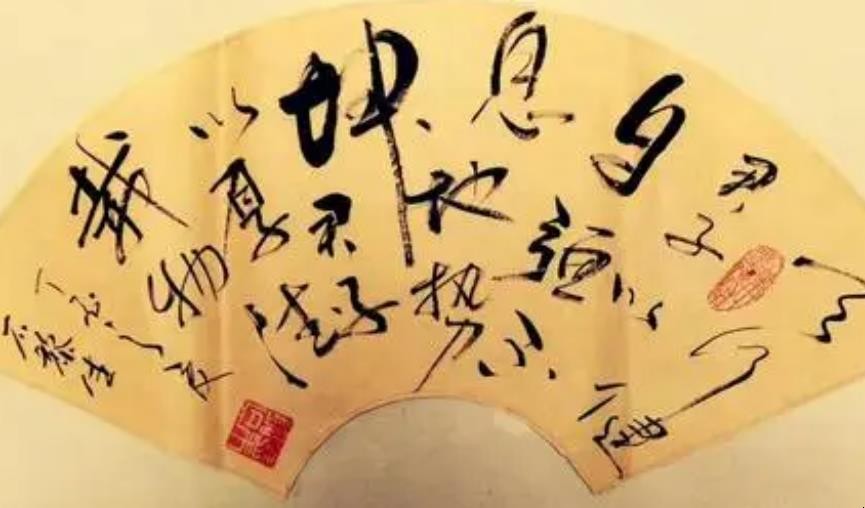 天
行健
君子以
自强不
息
地势
坤
君子
以厚德
载物